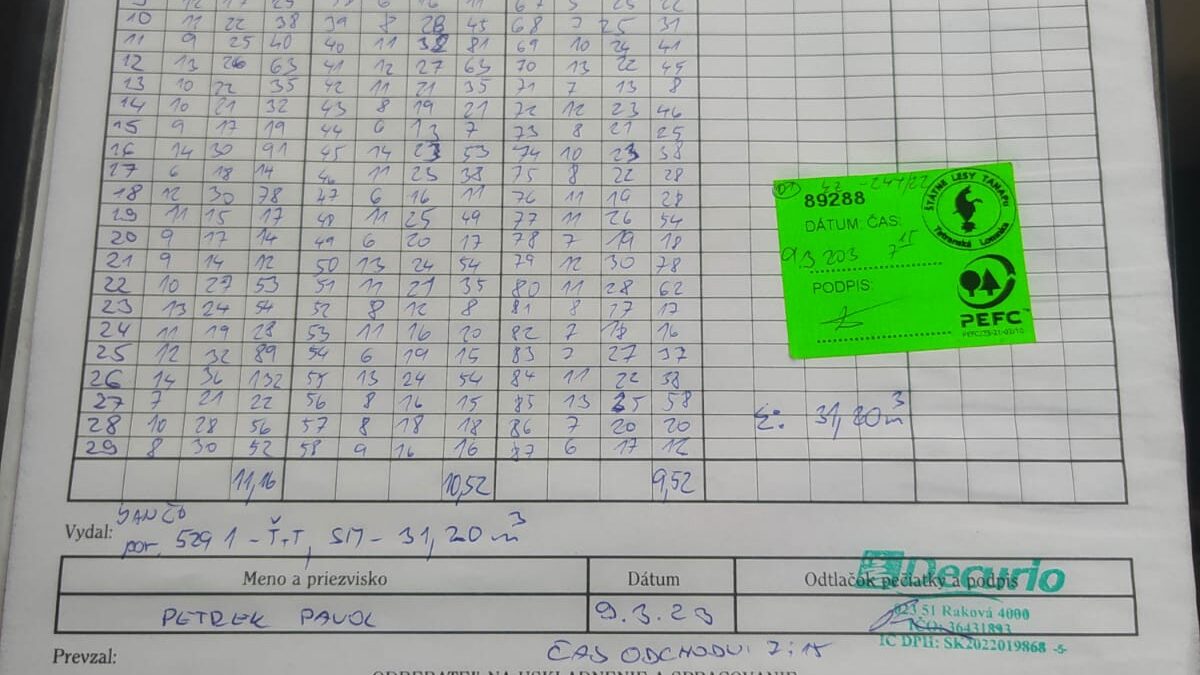 10 11 22 38 39 8 28 45 68 7 25 31
11 9 25 40 40 11 38 81 69 10 24 41
12 13 26 63 41 12 27 63 70 13 22 45
13 10 22 35 42 11 21 35 71 7 13 8
14 10 21 32 43 8 19 21 72 12 23 46
15 9 17 19 44 6 13 7 73 8 21 25
16 14 30 91 45 14 23 53 74 10 23 38
17 6 18 14 46 11 23 38 75 8 22 28
18 12 30 78 47 6 16 11 76 11 19 28
19 11 15 17 48 11 25 49 77 11 26 54
20 9 17 14 49 6 20 17 78 7 19 18
21 9 14 12 50 13 24 54 79 12 30 78
22 10 27 53 51 11 21 35 80 11 28 62
23 13 24 54 52 8 12 8 81 8 17 17
24 11 19 28 53 11 16 20 82 7 18 16
25 12 32 89 54 6 19 15 83 7 27 37
26 14 36 132 55 13 24 54 84 11 22 38
27 7 21 22 56 8 16 15 85 13 25 58
28 10 28 56 57 8 18 18 86 7 20 20
29 8 30 52 58 9 16 16 87 6 17 12
11,16 10,52 9,52
89288
DÁTUM: ČAS:
7 15
PODPIS:
ŠTÁTNE LESY TANAPu
Tatranská Lomnica
PEFC
Σ: 31,20 m3
Vydal: JANČO
por. 529 1 - Ť.T, SM - 31,20 m3
Meno a priezvisko Dátum Odtlačok pečiatky a podpis
PETREK PAVOL 9.3.23
Decurio
023 51 Raková 4000
IČO: 36431893
IC DPH: SK2022019868 -5-
Prevzal: ČAS ODCHODU: 7:15
ODBERATEĽ NA USKLADNENIE A SPRACOVANIE